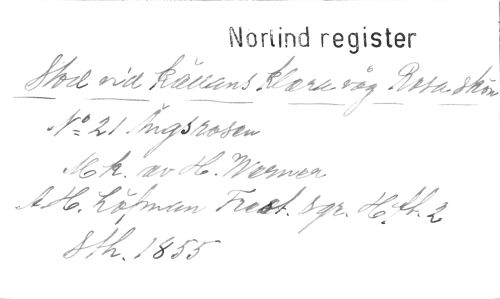 Norlind register
Stod vid källans klara våg Rosa skön
No 21 Ängsrosen
Mk. av H. Werner
A H. Löfman Fred. sgr. H.ft. 2
Sth. 1855